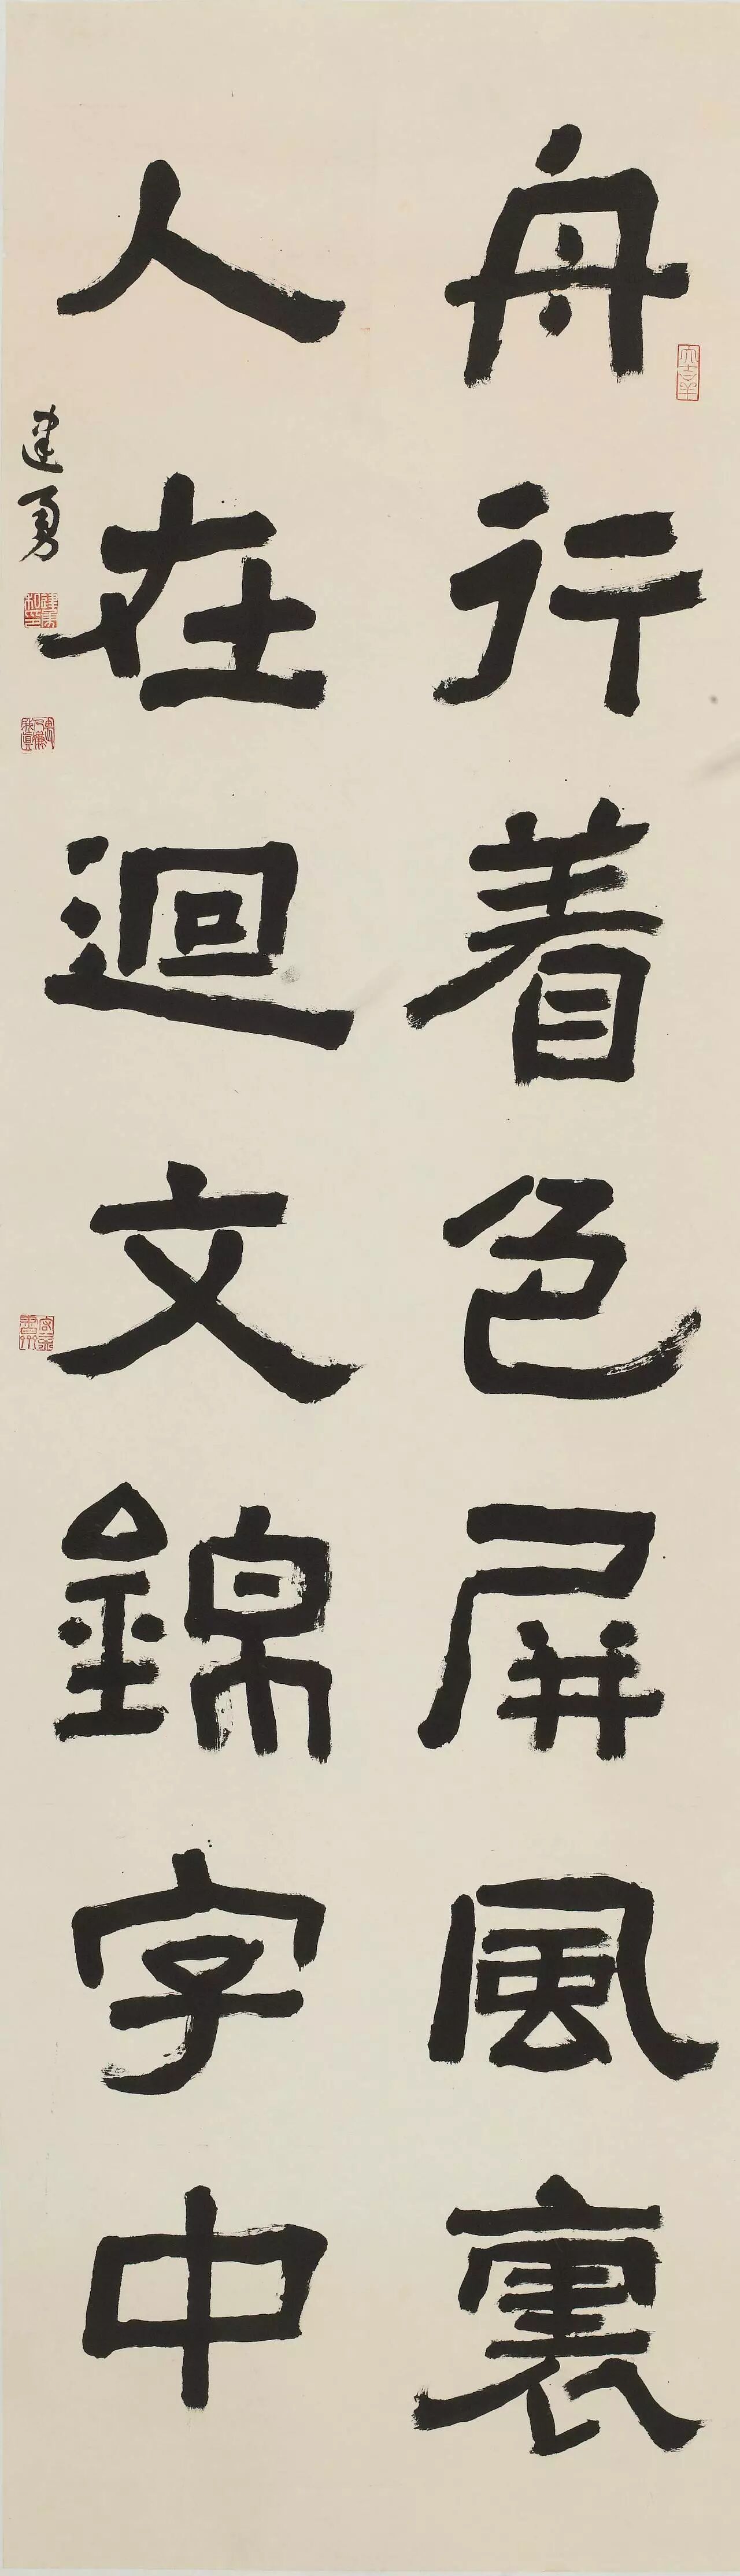 舟行着色屏風裏
人在迴文錦字中
建勇